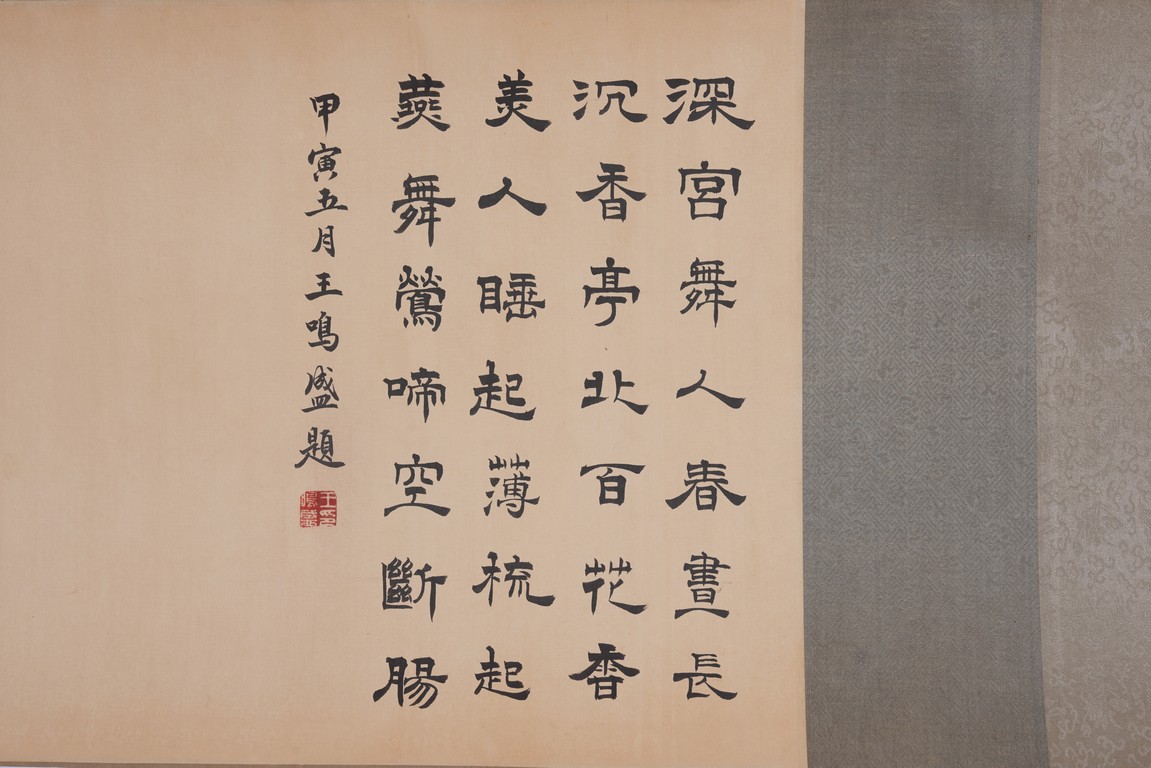 深宮舞人春晝長
沉香亭北百花香
美人睡起薄梳起
燕舞鶯啼空斷腸
甲寅五月王鳴盛題
王鳴盛印